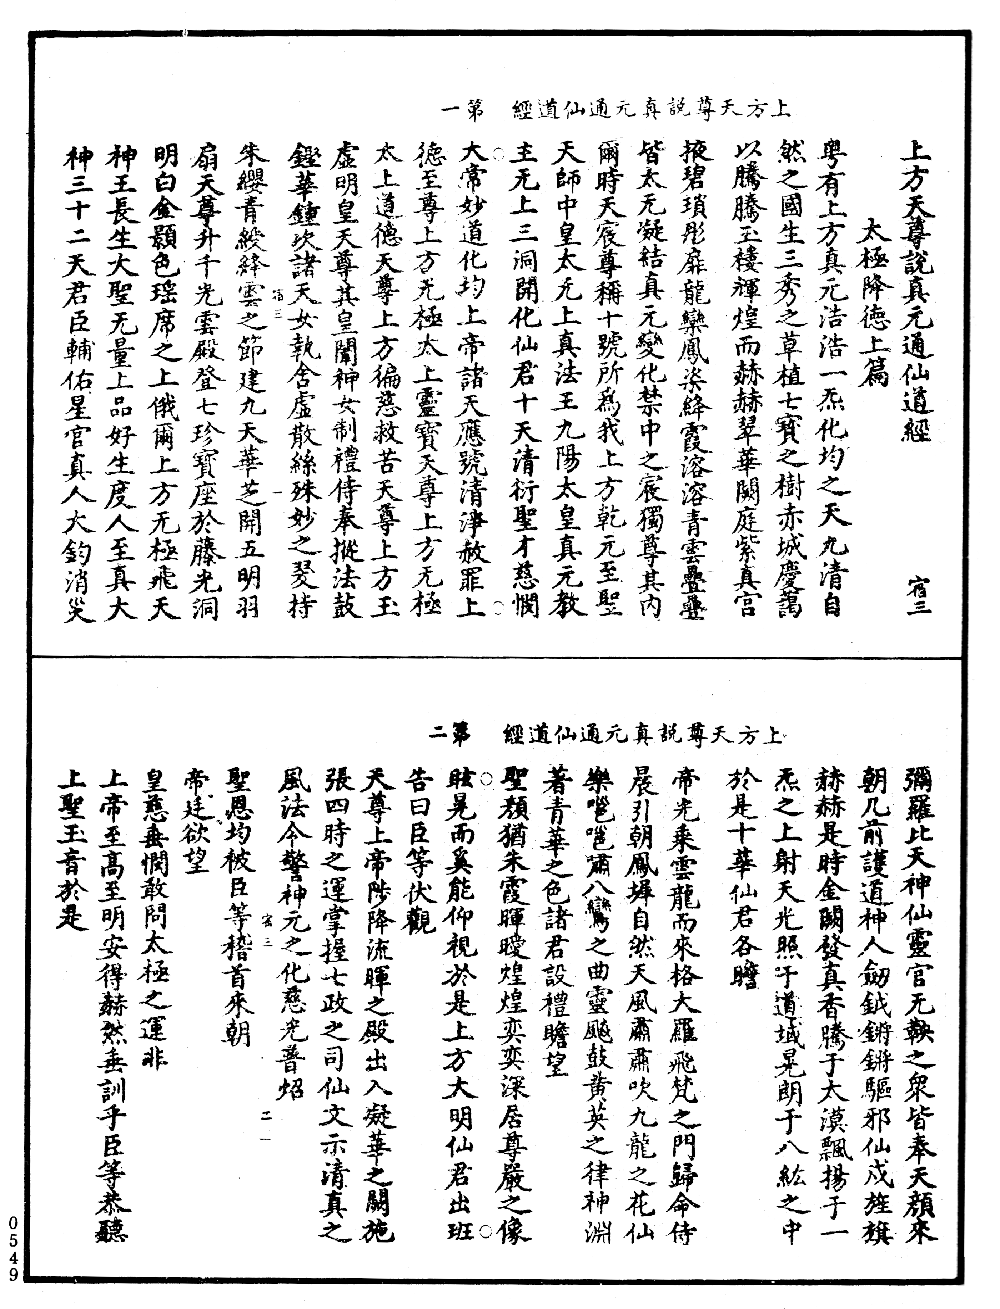 上方天尊說真元通仙道經　第一
上方天尊說真元通仙道經　宿三
太極降德上篇
粵有上方真元浩浩一炁化均之天九清自
然之國生三秀之草植七寶之樹赤城慶藹
以騰騰玉樓輝煌而赫赫翠華闕庭紫真宮
掖碧瑣彤扉龍欒鳳柒絳霞溶溶青雲疊疊
皆太元凝結真元變化禁中之宸獨尊其內
爾時天宸尊稱十號所為我上方乾元至聖
天師中皇太无上真法王九陽太皇真元教
主无上三洞開化仙君十天清衍聖才慈憫
大常妙道化均上帝諸天應號清淨赦罪上
德至尊上方无極太上靈寶天尊上方无極
太上道德天尊上方徧慈救苦天尊上方玉
虛明皇天尊其皇闈神女制禮侍奉摐法鼓
鏗華鍾次諸天女執含虛散絲殊妙之翣持
朱纓青緩絳雲之節建九天華芝開五明羽
宿三　一
扇天尊升千光雲殿登七珍寶座於藤光洞
明白金顥色瑶席之上俄爾上方无極飛天
神王長生大聖无量上品好生度人至真大
神三十二天君臣輔佑星官真人大鈞消災
上方天尊說真元通仙道經　第二
彌羅比天神仙靈官无鞅之衆皆奉天顏來
朝几前護道神人劒鉞鏘鏘驅邪仙戍旌旗
赫赫是時金闕發真香騰于太漠飄揚于一
炁之上射天光照于道域晃朗于八紘之中
於是十華仙君各瞻
帝光乘雲龍而來格大羅飛梵之門歸命侍
晨引朝鳳墀自然天風肅肅吹九龍之花仙
樂嗈嗈嘯八鸞之曲靈颷鼓黄英之律神淵
著青華之色諸君設禮瞻望
聖顏猶朱霞暉曖煌煌奕奕深居尊嚴之像
眩晃而奚能仰視於是上方大明仙君出班
告曰臣等伏觀
天尊上帝陟降流暉之殿出入凝華之闕施
張四時之運掌握七政之司仙文示清真之
風法令警神元之化慈光普炤
宿三　二
聖恩均被臣等稽首來朝
帝廷欲望
皇慈垂憫敢問太極之運非
上帝至高至明安得赫然垂訓乎臣等恭聽
上聖玉音於是
0549